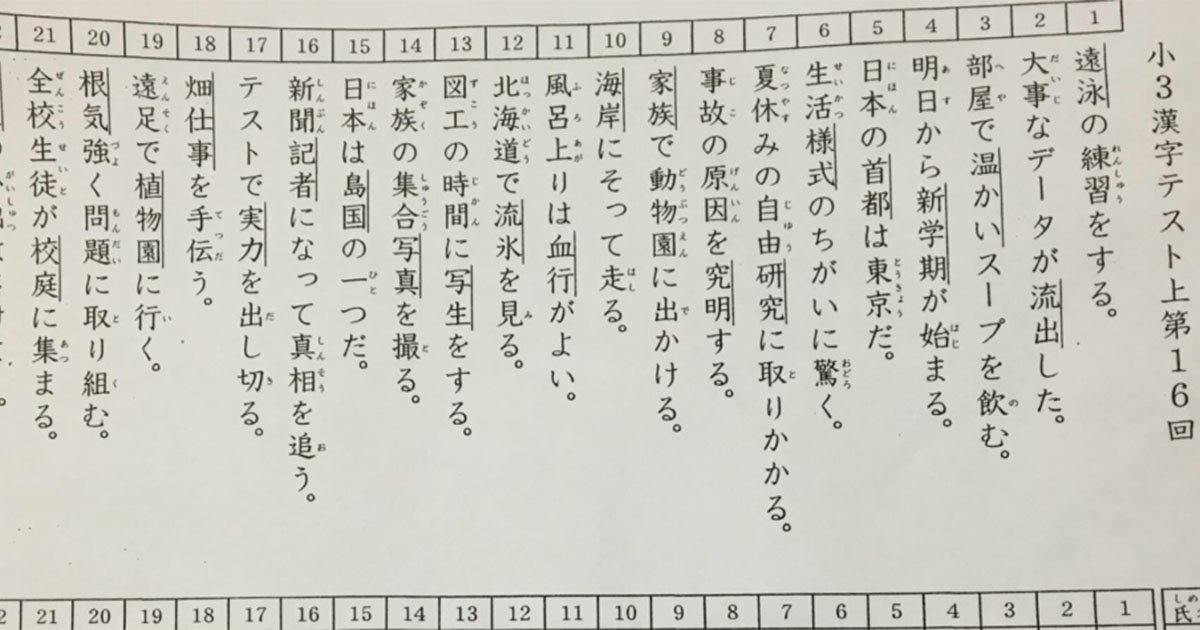 小3漢字テスト上第16回
1 遠泳の練習をする。
2 大事なデータが流出した。
3 部屋で温かいスープを飲む。
4 明日から新学期が始まる。
5 日本の首都は東京だ。
6 生活様式のちがいに驚く。
7 夏休みの自由研究に取りかかる。
8 事故の原因を究明する。
9 家族で動物園に出かける。
10 海岸にそって走る。
11 風呂上りは血行がよい。
12 北海道で流氷を見る。
13 図工の時間に写生をする。
14 家族の集合写真を撮る。
15 日本は島国の一つだ。
16 新聞記者になって真相を追う。
17 テストで実力を出し切る。
18 畑仕事を手伝う。
19 遠足で植物園に行く。
20 根気強く問題に取り組む。
21 全校生徒が校庭に集まる。
1
2
3
4
5
6
7
8
9
10
11
12
13
14
15
16
17
18
19
20
21